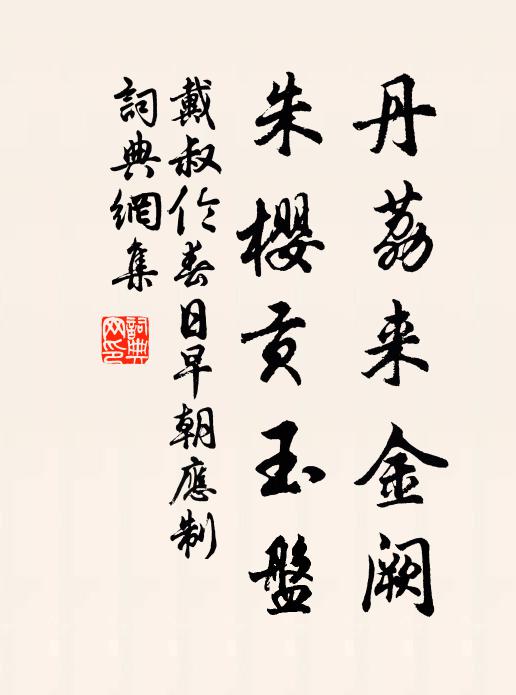 丹荔来金阙
朱樱贡玉盘
戴叔伦春日早朝應制
詞典網集
詞典网印